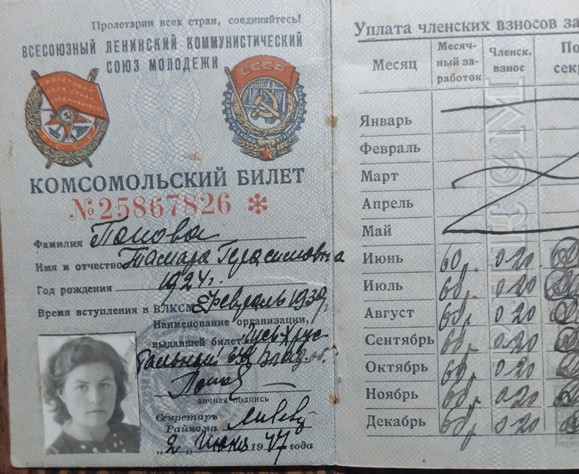 Пролетарии всех стран, соединяйтесь!
ВСЕСОЮЗНЫЙ ЛЕНИНСКИЙ КОММУНИСТИЧЕСКИЙ
СОЮЗ МОЛОДЕЖИ
СССР
КОМСОМОЛЬСКИЙ БИЛЕТ
№ 25867826 *
Фамилия Попова
Имя и отчество Тамара Герасимовна
Год рождения 1924 г.
Время вступления в ВЛКСМ Февраль 1939 г.
Наименование организации,
выдавшей билет
Личная подпись
Секретарь
Райкома
"2" июня 1947 года
Уплата членских взносов за
Месяц Месяч-ный за-работок Членск. взнос По секр
Январь
Февраль
Март
Апрель
Май
Июнь 60р. 0-20
Июль 60р. 0-20
Август 60р. 0-20
Сентябрь 60р. 0-20
Октябрь 60р. 0-20
Ноябрь 60р. 0-20
Декабрь 60р. 0-20